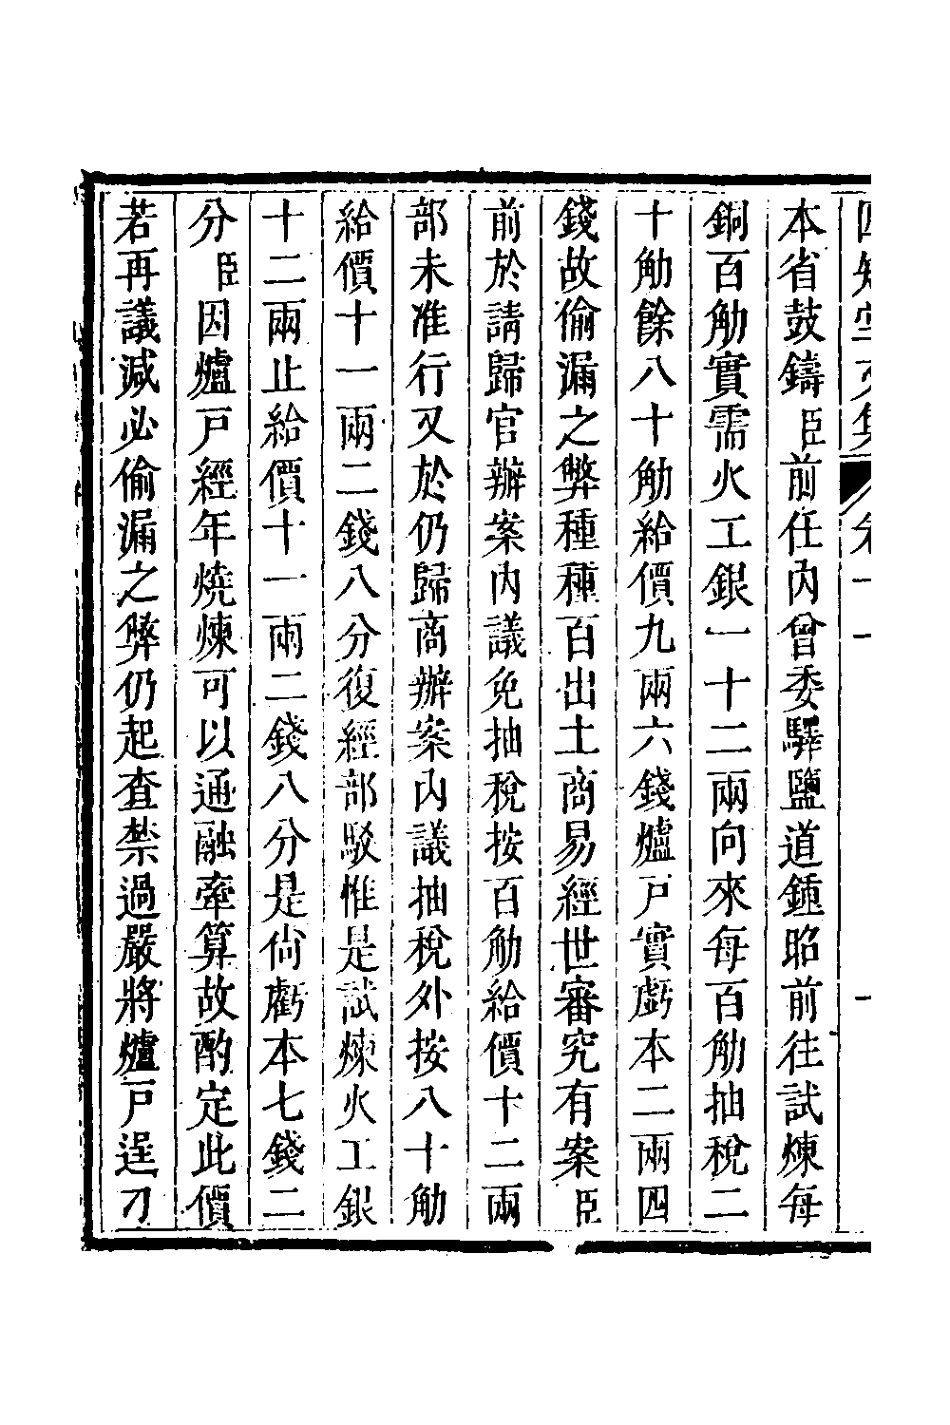 本省鼓鑄臣前任內曾委驛鹽道鍾昭前往試煉每
銅百觔實需火工銀一十二兩向來每百觔抽稅二
十觔餘八十觔給價九兩六錢爐戶實虧本二兩四
錢故偷漏之弊種種百出土商易經世審究有案臣
前於請歸官辦案內議免抽稅按百觔給價十二兩
部未准行又於仍歸商辦案內議抽稅外按八十觔
給價十一兩二錢八分復經部駁惟是試煉火工銀
十二兩止給價十一兩二錢八分是尙虧本七錢二
分臣因爐戶經年燒煉可以通融牽算故酌定此價
若再議減必偷漏之弊仍起查禁過嚴將爐戶逞刀